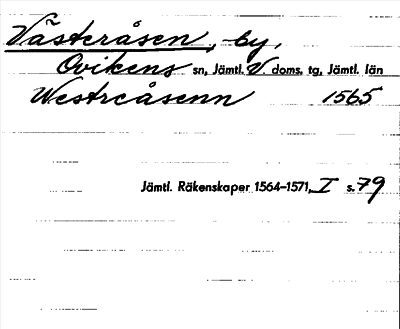 Västeråsen, by,
Ovikens sn, Jämtl. V. doms. tg, Jämtl. län
Westreåsenn 1565
Jämtl. Räkenskaper 1564–1571, I s. 79